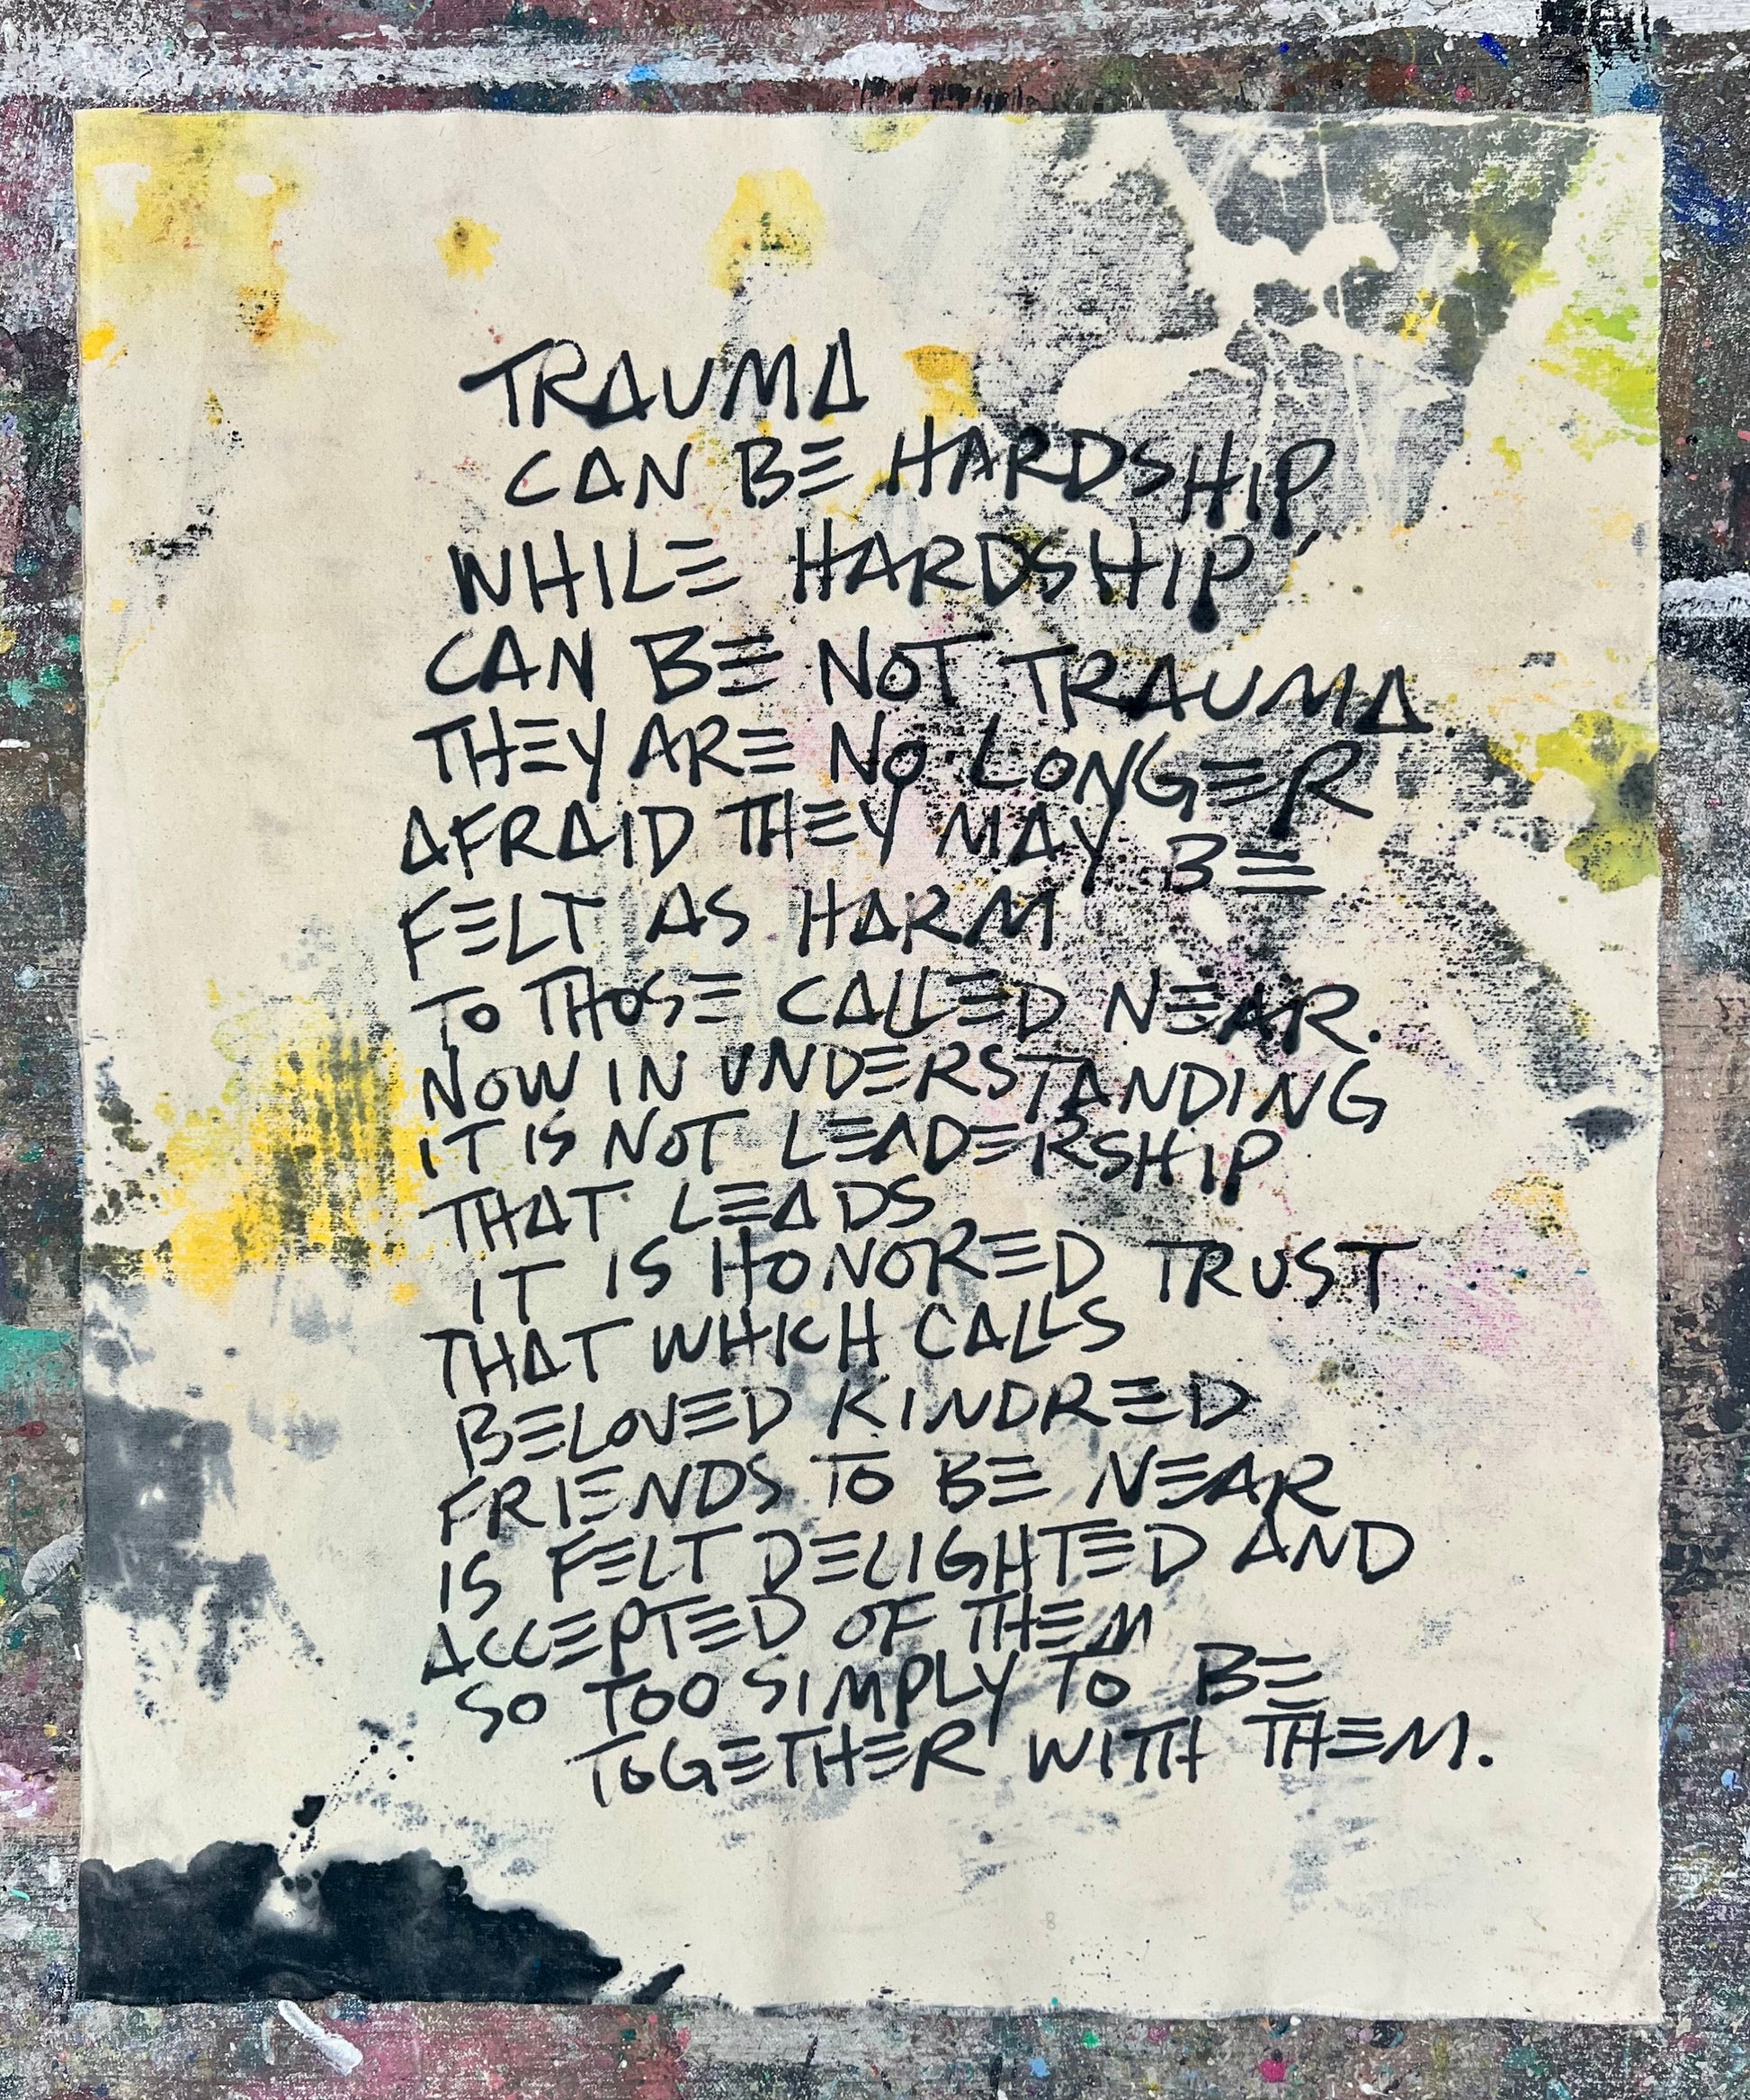 TRAUMA
CAN BE HARDSHIP
WHILE HARDSHIP
CAN BE NOT TRAUMA
THEY ARE NO LONGER
AFRAID THEY MAY BE
FELT AS HARM
TO THOSE CALLED NEAR.
NOW IN UNDERSTANDING
IT IS NOT LEADERSHIP
THAT LEADS
IT IS HONORED TRUST
THAT WHICH CALLS
BELOVED KINDRED
FRIENDS TO BE NEAR
IS FELT DELIGHTED AND
ACCEPTED OF THEM
SO TOO SIMPLY TO BE
TOGETHER WITH THEM.